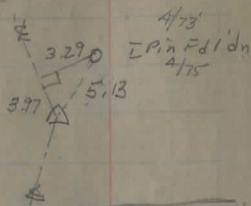 4/73'
I Pin Fd 1' dn
4/75
3.29
5.13
3.97